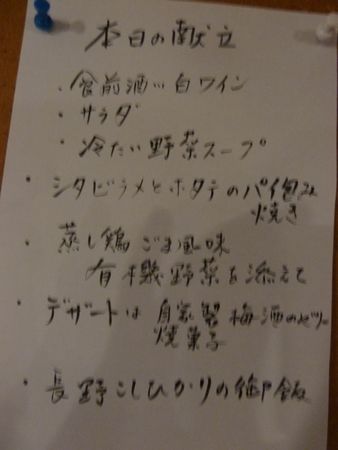 本日の献立
・食前酒…白ワイン
・サラダ
・冷たい野菜スープ
・シタビラメとホタテのパイ包み
焼き
・蒸し鶏ごま風味
有機野菜を添えて
・デザートは 自家製梅酒のゼリー
焼菓子
・長野こしひかりの御飯